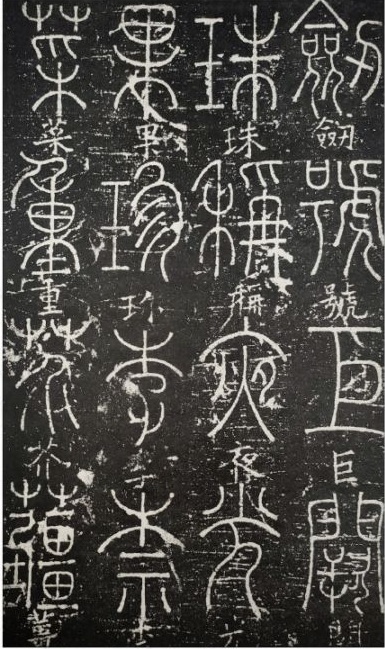 劒劒號號巨巨闕闕
珠珠稱稱夜夜光光
果果珍珎李李柰柰
菜菜重重芥芥薑薑